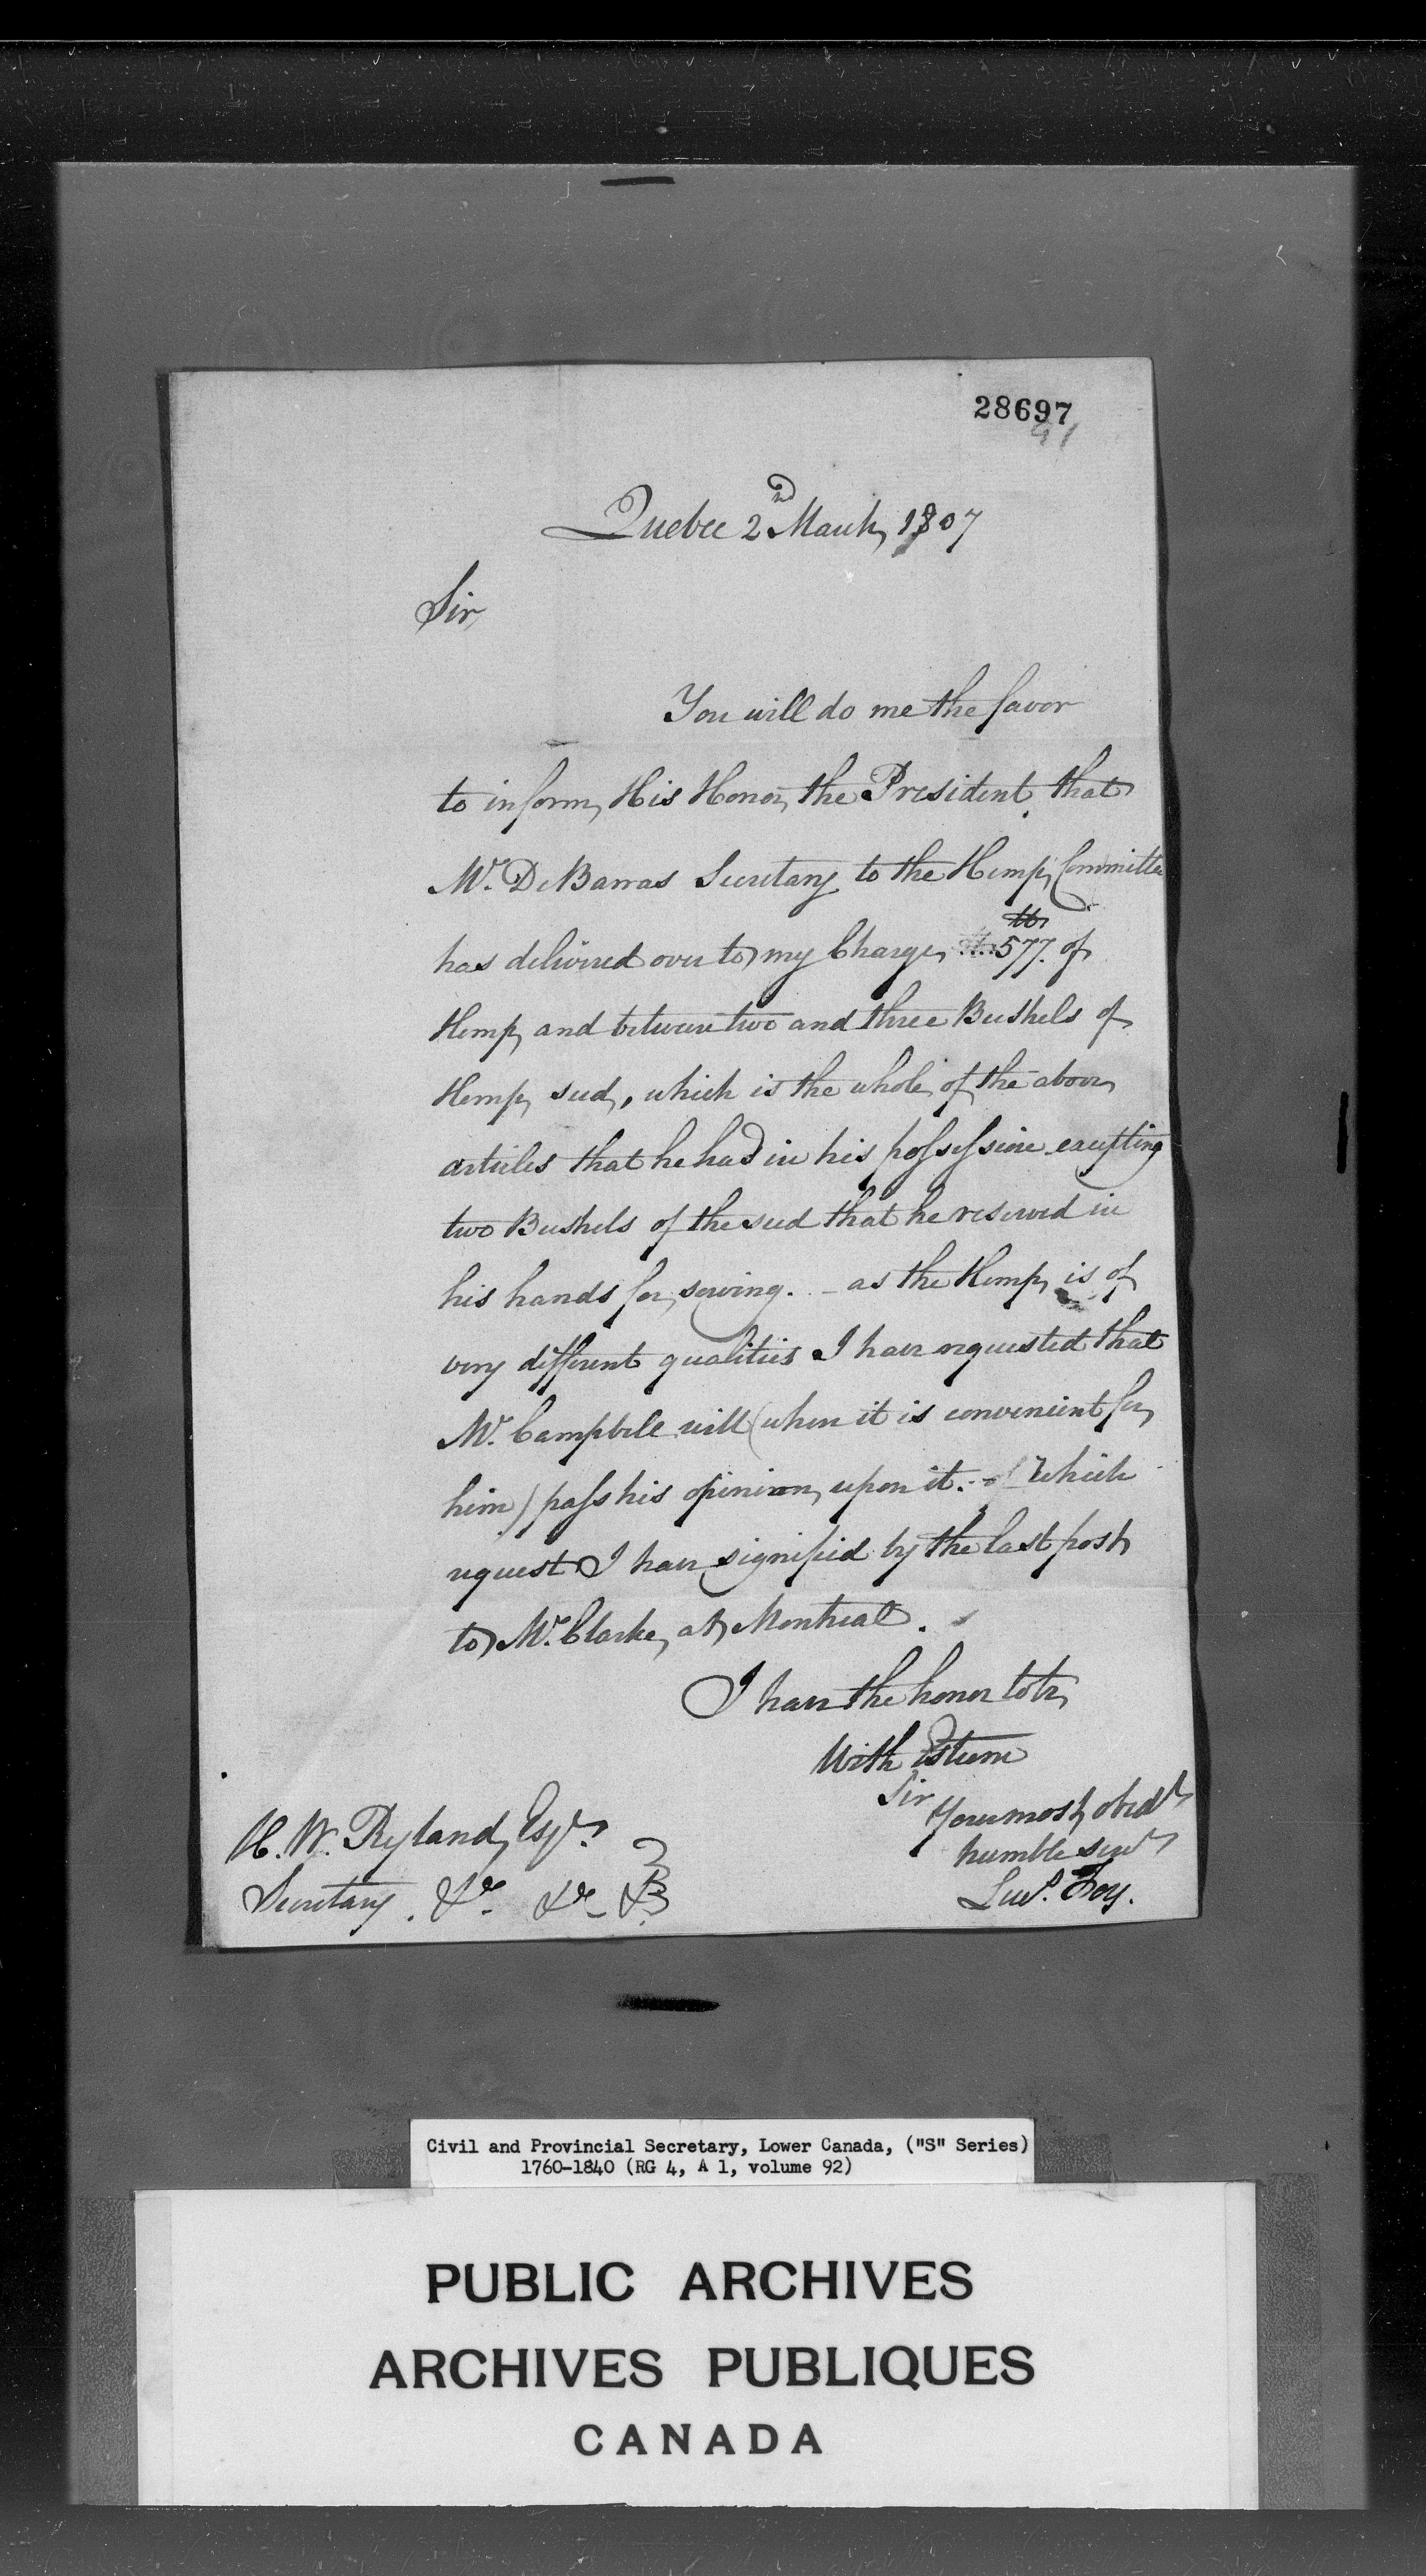 28697
91
Quebec 2nd March, 1807
Sir
You will do me the favor
to inform, His Honor, the President, that
Mr. DeBarras Secretary to the Hemp, Committee
has delivered over to my Charge, lb 577. of
Hemp, and between two and three Bushels of
Hemp, seed, which is the whole, of the above
articles that he had in his possession excepting
two Bushels of the seed that he reserved in
his hands for, sowing. - as the Hemp, is of
very different qualities I have requested that
Mr. Campbell will (when it is convenient for,
him) pass his opinion, upon it. - Which
request I have signified by the last post,
to Mr. Clarke, at Montreal.
I have the honor to be,
With Esteem
Sir
Your most, obedt
humble servt
Lews. Foy.
H. W. Ryland, Esqr.
Secretary. &c. &c &c
Civil and Provincial Secretary, Lower Canada, ("S" Series)
1760-1840 (RG 4, A 1, volume 92)
PUBLIC ARCHIVES
ARCHIVES PUBLIQUES
CANADA